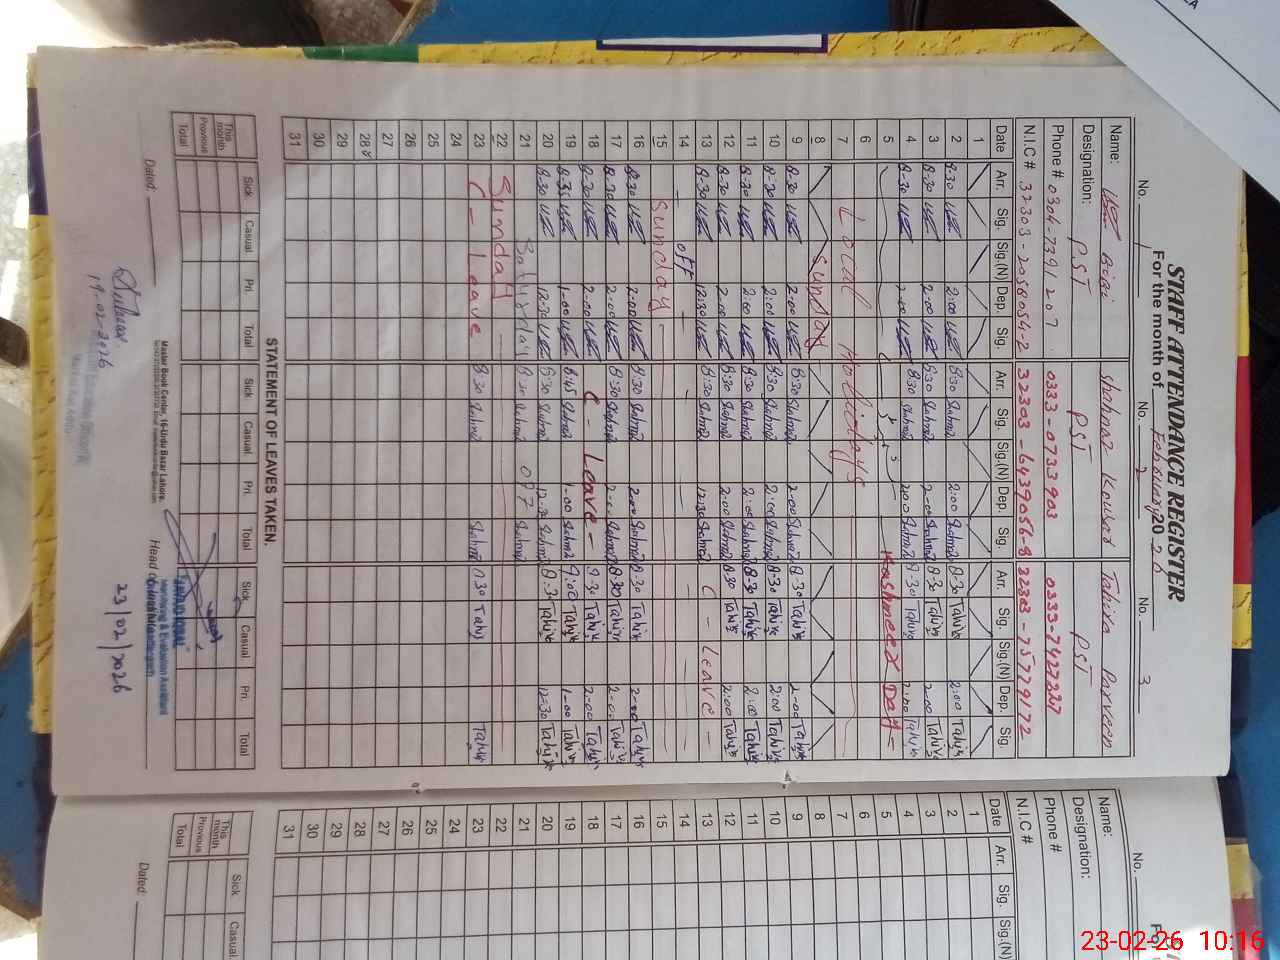 STAFF ATTENDANCE REGISTER
For the month of February 2026
No. 1 No. 2 No. 3
Name: Bibi Shahnaz Kousar Tahira Parveen
Designation: PST PST PST
Phone # 0304-7391207 0333-0733903 0333-7427227
N.I.C # 32303-2058054-2 32303-6439056-8 32303-7577917 2
Date Arr. Sig. Sig.(N) Dep. Sig. Arr. Sig. Sig.(N) Dep. Sig. Arr. Sig. Sig.(N) Dep. Sig.
1
2 8-30 2:00 8:30 Shahnaz 2:00 Shahnaz 8-30 Tahira 2:00 Tahira
3 8-30 2-00 8:30 Shahnaz 2-00 Shahnaz 8-30 Tahira 2-00 Tahira
4 8-30 2-00 8:30 Shahnaz 2:00 Shahnaz 8-30 Tahira 2:00 Tahira
5 Kashmeer Day
6
7 Local Holidays
8 Sunday
9 8-30 2-00 8:30 Shahnaz 2-00 Shahnaz 8-30 Tahira 2-00 Tahira
10 8-30 2:00 8:30 Shahnaz 2:00 Shahnaz 8-30 Tahira 2:00 Tahira
11 8-30 2:00 8:30 Shahnaz 2:00 Shahnaz 8-30 Tahira 2:00 Tahira
12 8-30 2-00 8:30 Shahnaz 2:00 Shahnaz 8-30 Tahira 2:00 Tahira
13 8-30 12:30 8:30 Shahnaz 12:30 Shahnaz C - Leave -
14 - OFF -
15 Sunday
16 8-30 2-00 8:30 Shahnaz 2-00 Shahnaz 8-30 Tahira 2-00 Tahira
17 8-30 2-00 8:30 Shahnaz 2-00 Shahnaz 8-30 Tahira 2-00 Tahira
18 8-30 2-00 C - Leave - 9-30 Tahira 2-00 Tahira
19 8-35 1-00 8:45 Shahnaz 1-00 Shahnaz Tahira 1-00 Tahira
20 8-30 12-30 8:30 Shahnaz Shahnaz 8-3 Tahira 12-30 Tahira
21 Saturday 8:30 Shahnaz Shahnaz
22 Sunday
23 C - Leave 8:30 Shahnaz Shahnaz Tahira Tahira
24
25
26
27
28
29
30
31
STATEMENT OF LEAVES TAKEN.
Sick Casual Pri. Total Sick Casual Pri. Total Sick Casual Pri. Total
This month
Previous
Total
Dated:
19-02-2026
Master Book Center, 16-Urdu Bazar Lahore.
Head of
Monitoring & Evaluation Assistant
23/02/2026
No.
For
Name:
Designation:
Phone #
N.I.C #
Date Arr. Sig. Sig.(N)
1
2
3
4
5
6
7
8
9
10
11
12
13
14
15
16
17
18
19
20
21
22
23
24
25
26
27
28
29
30
31
Sick Casual
This month
Previous
Total
Dated:
23-02-26 10:16